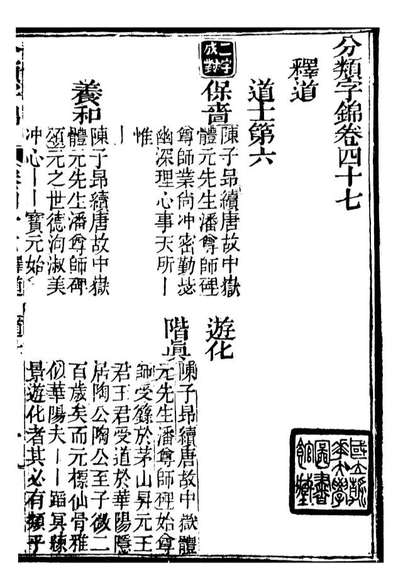 分類字錦卷四十七
釋道
道士第六
二字成對
保嗇
陳子昂續唐故中嶽
體元先生潘尊師碑
尊師業尚沖密勤苾
幽深理心事天所丨
丨惟
遊化
養和
陳子昂續唐故中嶽
體元先生潘尊師碑
頌元之世德洵淑美
沖心丨丨寶元始
階眞
陳子昂續唐故中嶽體
元先生潘尊師碑始尊
師受籙於茅山昇元王
君王君受道於華陽隱
居陶公陶公至子微二
百歲矣而元標仙骨雅
似華陽夫丨丨蹈冥練
景遊化者其必有類乎